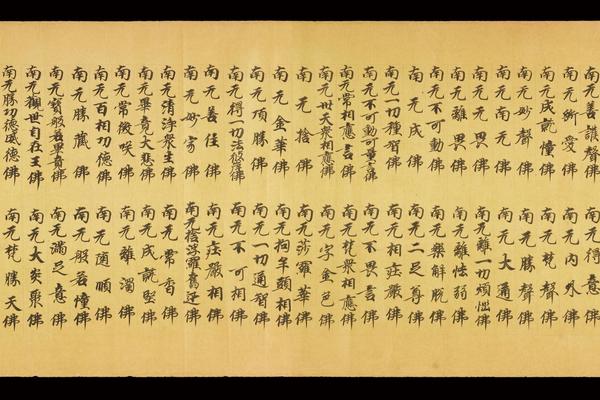 南无善讚聲佛 南无得意佛
南无斷愛佛 南无内外佛
南无成就憧佛 南无梵聲佛
南无妙聲佛 南无勝聲佛
南无南无佛 南无大通佛
南无无畏佛 南无離一切煩惱佛
南无離畏佛 南无離怯弱佛
南无不可動佛 南无樂解脫佛
南无成佛 南无二足尊佛
南无一切種智佛 南无相莊嚴佛
南无不可動可量佛 南无不畏言佛
南无常相應言佛 南无梵衆相應佛
南无世天衆相應佛 南无字金色佛
南无捨佛 南无莎羅華佛
南无金華佛 南无拘牟頭相佛
南无頂勝佛 南无一切通智佛
南无得一切法彼岸佛 南无不可相佛
南无善住佛 南无莊嚴相佛
南无妙香佛 南无捨浮羅奮迅佛
南无清淨衆生佛 南无常香佛
南无畢竟大悲佛 南无成就堅佛
南无常微咲佛 南无離濁佛
南无百相功德佛 南无随順佛
南无勝藏佛 南无般若憧佛
南无寶般若畢竟佛 南无滿足意佛
南无觀世自在王佛 南无大聚佛
南无勝功德威德佛 南无梵勝天佛